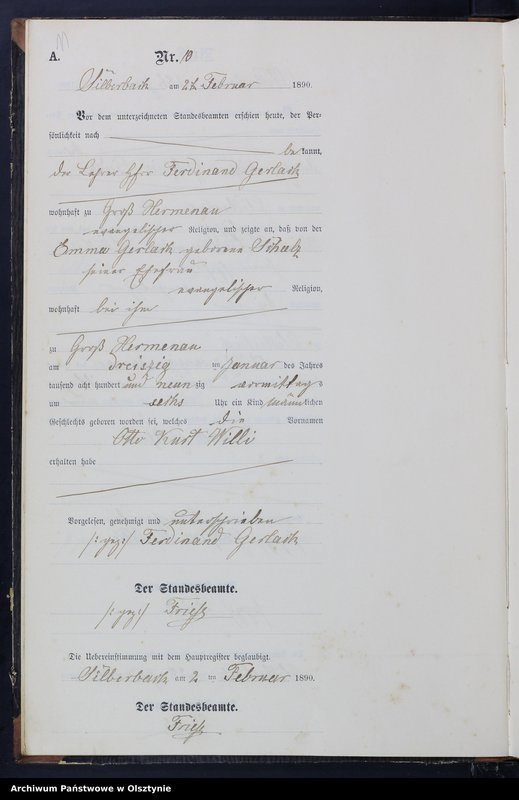 11
A. Nr. 10
Silberbach am 2ten Februar 1890.
Vor dem unterzeichneten Standesbeamten erschien heute, der Per-
sönlichkeit nach
bekannt,
der Lehrer Herr Ferdinand Gerlach
wohnhaft zu Groß Hermenau
evangelischer Religion, und zeigte an, daß von der
Emma Gerlach geborene Schulz
seiner Ehefrau
evangelischer Religion,
wohnhaft bei ihm
zu Groß Hermenau
am dreiszig ten Januar des Jahres
tausend acht hundert und neun zig vormittags
um sechs Uhr ein Kind männlichen
Geschlechts geboren worden sei, welches die Vornamen
Otto Kurt Willi
erhalten habe
Vorgelesen, genehmigt und unterschrieben
/: gez :/ Ferdinand Gerlach
Der Standesbeamte.
/: gez :/
Die Uebereinstimmung mit dem Hauptregister beglaubigt.
Silberbach am 2 ten Februar 1890.
Der Standesbeamte.
Archiwum Państwowe w Olsztynie